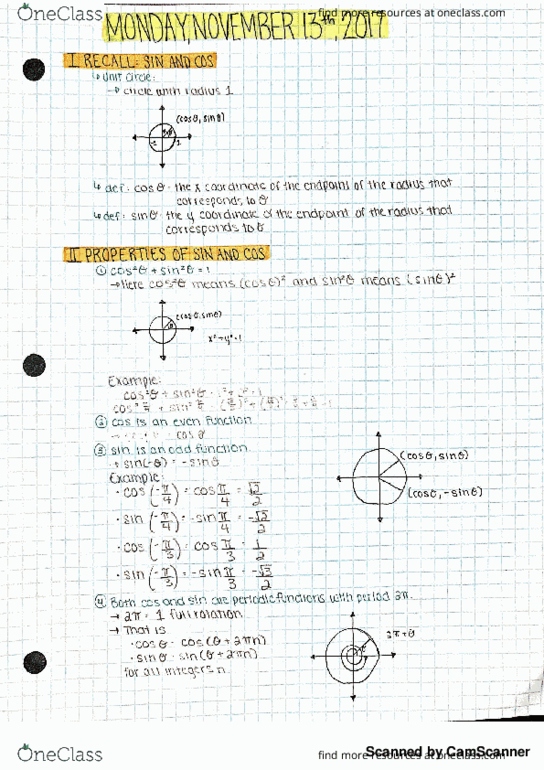 OneClass
find more resources at oneclass.com
MONDAY, NOVEMBER 13th, 2017
I RECALL: SIN AND COS
↳ unit circle:
→ circle with radius 1
(cosθ, sinθ)
↳ def: cosθ: the x coordinate of the endpoint of the radius that
corresponds to θ
↳ def: sinθ: the y coordinate of the endpoint of the radius that
corresponds to θ
II PROPERTIES OF SIN AND COS
① cos²θ + sin²θ = 1
→ Here cos²θ means (cosθ)² and sin²θ means (sinθ)²
(cosθ, sinθ)
x² + y² = 1
Example:
cos²θ + sin²θ
② cos is an even function
cosθ
③ sin is an odd function
→ sin(-θ) = -sinθ
(cosθ, sinθ)
(cosθ, -sinθ)
Example:
· cos(-π/4) = cos π/4 = √2/2
· sin(-π/4) = -sin π/4 = -√2/2
· cos(-π/3) = cos π/3 = 1/2
· sin(-π/3) = -sin π/3 = -√3/2
④ Both cos and sin are periodic functions with period 2π.
→ 2π = 1 full rotation
→ That is
· cosθ = cos(θ + 2πn)
· sinθ = sin(θ + 2πn)
for all integers n.
2π + θ
OneClass
find more resources at oneclass.com
Scanned by CamScanner